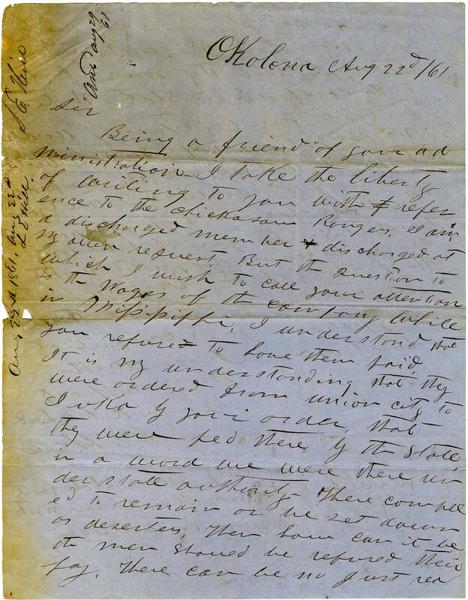 Okolona Aug 22d /61
Sir
Being a friend of your ad
ministration I take the liberty
of writing to you with refer
ence to the Chickasaw Ranges, I am
a discharged member discharged at
my own request. But the question to
which I wish to call your attention
is the wages of the company while
in Mississippi. I understand that
you refused to have them paid.
It is my understanding that they
were ordered from union city to
Iuka by your order, that
they were fed there by the state
in a word we were there un
der state authority. There compell
ed to remain or be set down
as deserters. Then how can it be
the men should be refused their
pay. There can be no just rea
Ansd Aug 29
/61
Aug 22d 1861